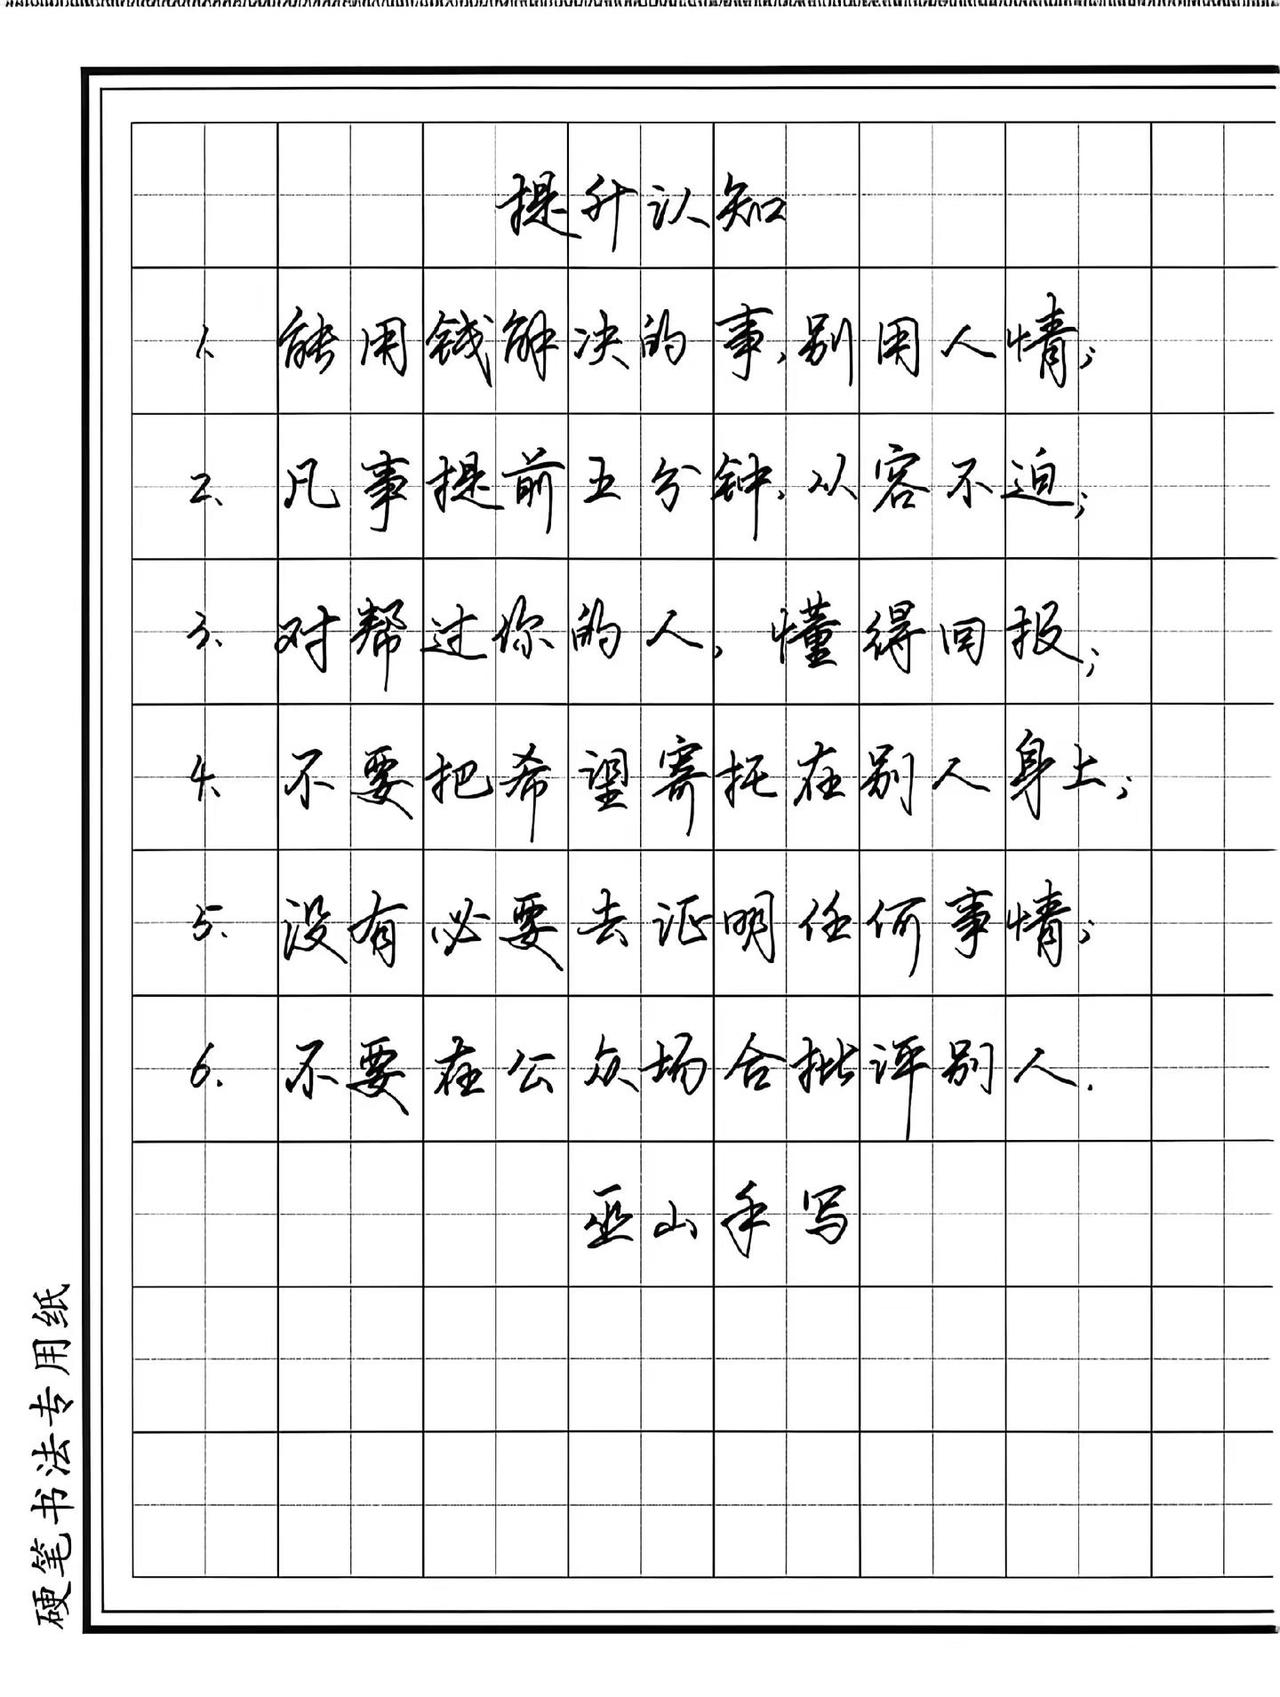 提升认知
1、能用钱解决的事,别用人情;
2、凡事提前五分钟,从容不迫;
3、对帮过你的人,懂得回报;
4、不要把希望寄托在别人身上;
5、没有必要去证明任何事情;
6、不要在公众场合批评别人.
巫山手写
硬笔书法专用纸